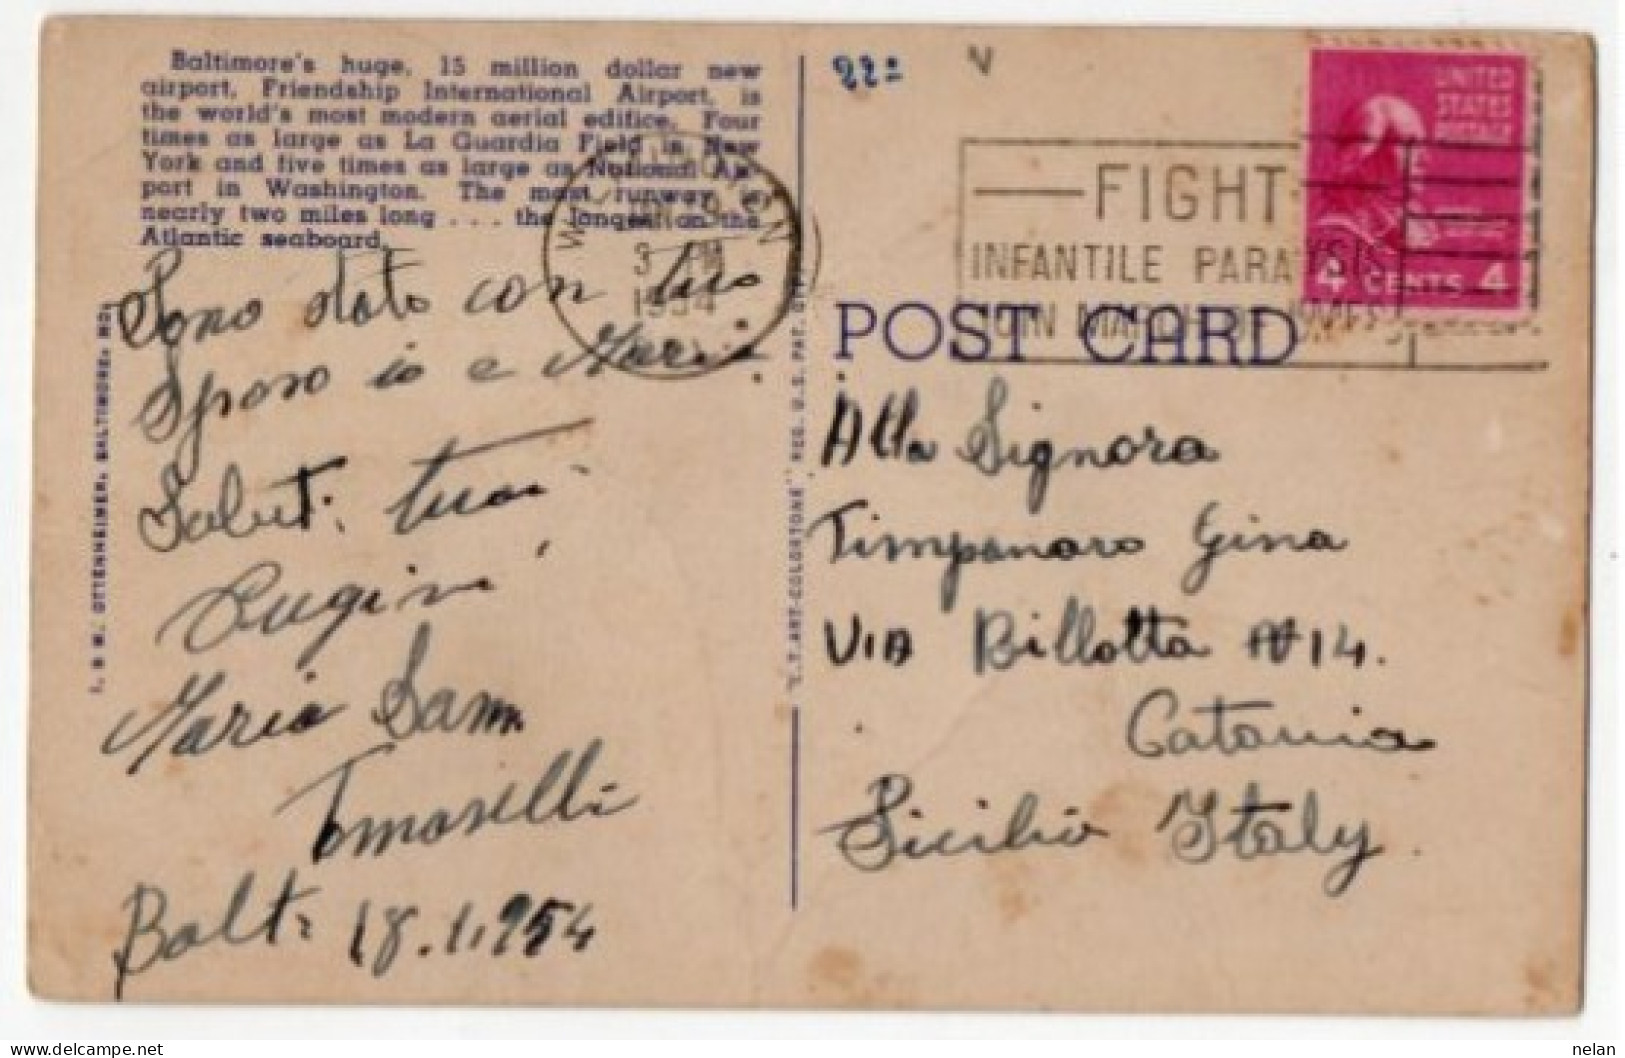 Baltimore's huge, 15 million dollar new
airport, Friendship International Airport, is
the world's most modern aerial edifice. Four
times as large as La Guardia Field in New
York and five times as large as National Air-
port in Washington. The most runway is
nearly two miles long . . . the longest on the
Atlantic seaboard.
Sono stato con tuo
Sposo io e Maria
Saluti tuoi
Cugini
Maria Sam
Tomaselli
Balt. 18.1.954
I. & M. OTTENHEIMER, BALTIMORE, MD.
"C.T. ART-COLORTONE" REG. U.S. PAT. OFF.
3 PM
1954
FIGHT
INFANTILE PARALYSIS
JOIN MARCH OF DIMES
UNITED
STATES
POSTAGE
4 CENTS 4
POST CARD
Alla Signora
Timpanaro Gina
VIA Billotta N 14.
Catania
Sicilia Italy.
delcampe.net
nelan